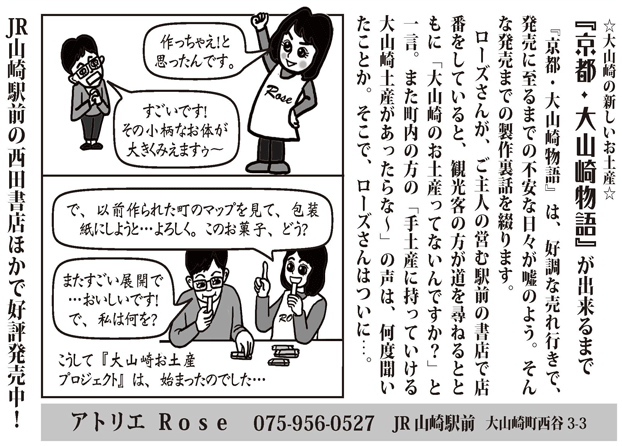 ☆大山崎の新しいお土産☆
『京都・大山崎物語』が出来るまで
『京都・大山崎物語』は、好調な売れ行きで、
発売に至るまでの不安な日々が嘘のよう。そん
な発売までの製作裏話を綴ります。
ローズさんが、ご主人の営む駅前の書店で店
番をしていると、観光客の方が道を尋ねるとと
もに「大山崎のお土産ってないんですか？」と
一言。また町内の方の「手土産に持っていける
大山崎土産があったらな～」の声は、何度聞い
たことか。そこで、ローズさんはついに…。
作っちゃえ！と
思ったんです。
Rose
すごいです！
その小柄なお体が
大きくみえますゥ～
で、以前作られた町のマップを見て、包装
紙にしようと…よろしく。このお菓子、どう？
またすごい展開で
…おいしいです！
で、私は何を？
RO
こうして『大山崎お土産
プロジェクト』は、始まったのでした…
JR山崎駅前の西田書店ほかで好評発売中！
アトリエ Rose 075-956-0527 JR山崎駅前 大山崎町西谷3-3